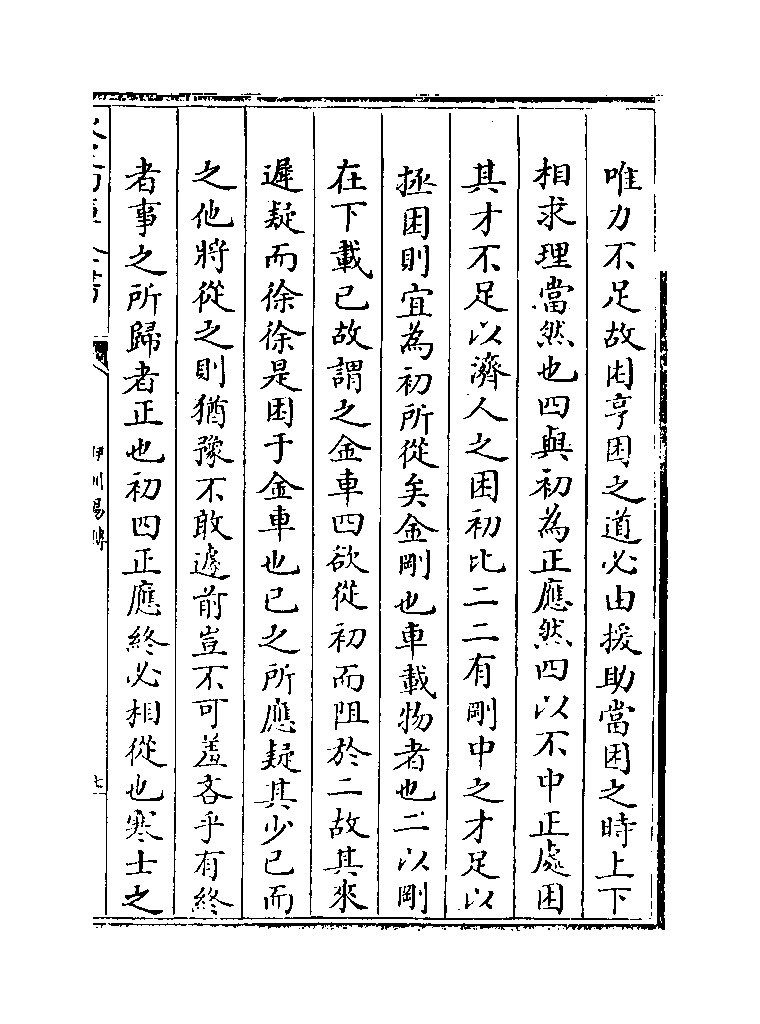 唯力不足故困亨困之道必由援助當困之時上下
相求理當然也四與初為正應然四以不中正處困
其才不足以濟人之困初比二二有剛中之才足以
拯困則宜為初所從矣金剛也車載物者也二以剛
在下載己故謂之金車四欲從初而阻於二故其來
遲疑而徐徐是困于金車也己之所應疑其少己而
之他將從之則猶豫不敢遽前豈不可羞吝乎有終
者事之所歸者正也初四正應終必相從也寒士之
伊川易傳